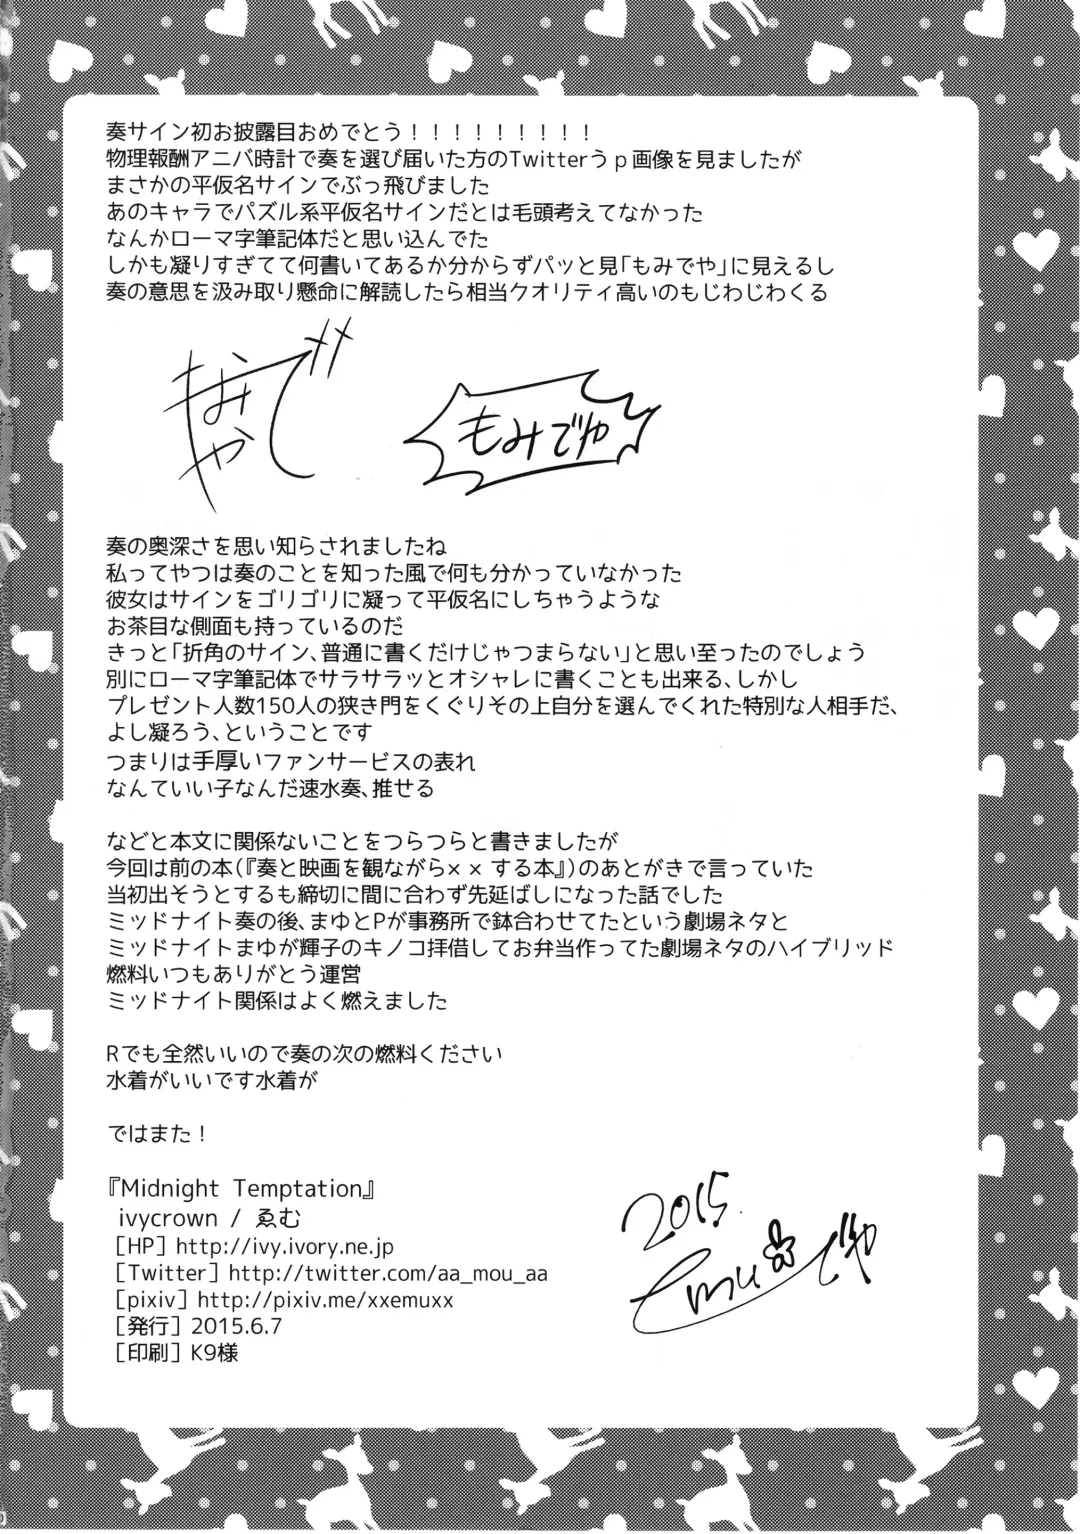 奏サイン初お披露目おめでとう！！！！！！！！！
物理報酬アニバ時計で奏を選び届いた方のTwitterうｐ画像を見ましたが
まさかの平仮名サインでぶっ飛びました
あのキャラでパズル系平仮名サインだとは毛頭考えてなかった
なんかローマ字筆記体だと思い込んでた
しかも凝りすぎてて何書いてあるか分からずパッと見「もみでや」に見えるし
奏の意思を汲み取り懸命に解読したら相当クオリティ高いのもじわじわくる
もみでや
奏の奥深さを思い知らされましたね
私ってやつは奏のことを知った風で何も分かっていなかった
彼女はサインをゴリゴリに凝って平仮名にしちゃうような
お茶目な側面も持っているのだ
きっと「折角のサイン、普通に書くだけじゃつまらない」と思い至ったのでしょう
別にローマ字筆記体でサラサラッとオシャレに書くことも出来る、しかし
プレゼント人数150人の狭き門をくぐりその上自分を選んでくれた特別な人相手だ、
よし凝ろう、ということです
つまりは手厚いファンサービスの表れ
なんていい子なんだ速水奏、推せる
などと本文に関係ないことをつらつらと書きましたが
今回は前の本(『奏と映画を観ながら××する本』)のあとがきで言っていた
当初出そうとするも締切に間に合わず先延ばしになった話でした
ミッドナイト奏の後、まゆとPが事務所で鉢合わせてたという劇場ネタと
ミッドナイトまゆが輝子のキノコ拝借してお弁当作ってた劇場ネタのハイブリッド
燃料いつもありがとう運営
ミッドナイト関係はよく燃えました
Rでも全然いいので奏の次の燃料ください
水着がいいです水着が
ではまた！
『Midnight Temptation』
ivycrown / ゑむ
［HP］http://ivy.ivory.ne.jp
［Twitter］http://twitter.com/aa_mou_aa
［pixiv］http://pixiv.me/xxemuxx
［発行］2015.6.7
［印刷］K9様
2015
Emu
でや